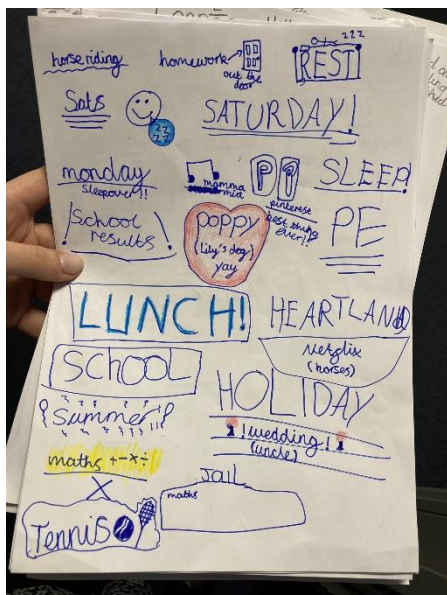 horse riding
homework → out the door
zzz
REST
Sats
SATURDAY!
monday
sleepover!!
mamma mia
P P
pinterest
best thing
ever!!
SLEEP!
!School
results!
poppy
(lily's dog)
yay
PE
LUNCH!
HEARTLAND
Netflix
(horses)
SCHOOL
HOLIDAY
Summer
!wedding!
(uncle)
maths + - x ÷
X
Jail
maths
Tennis